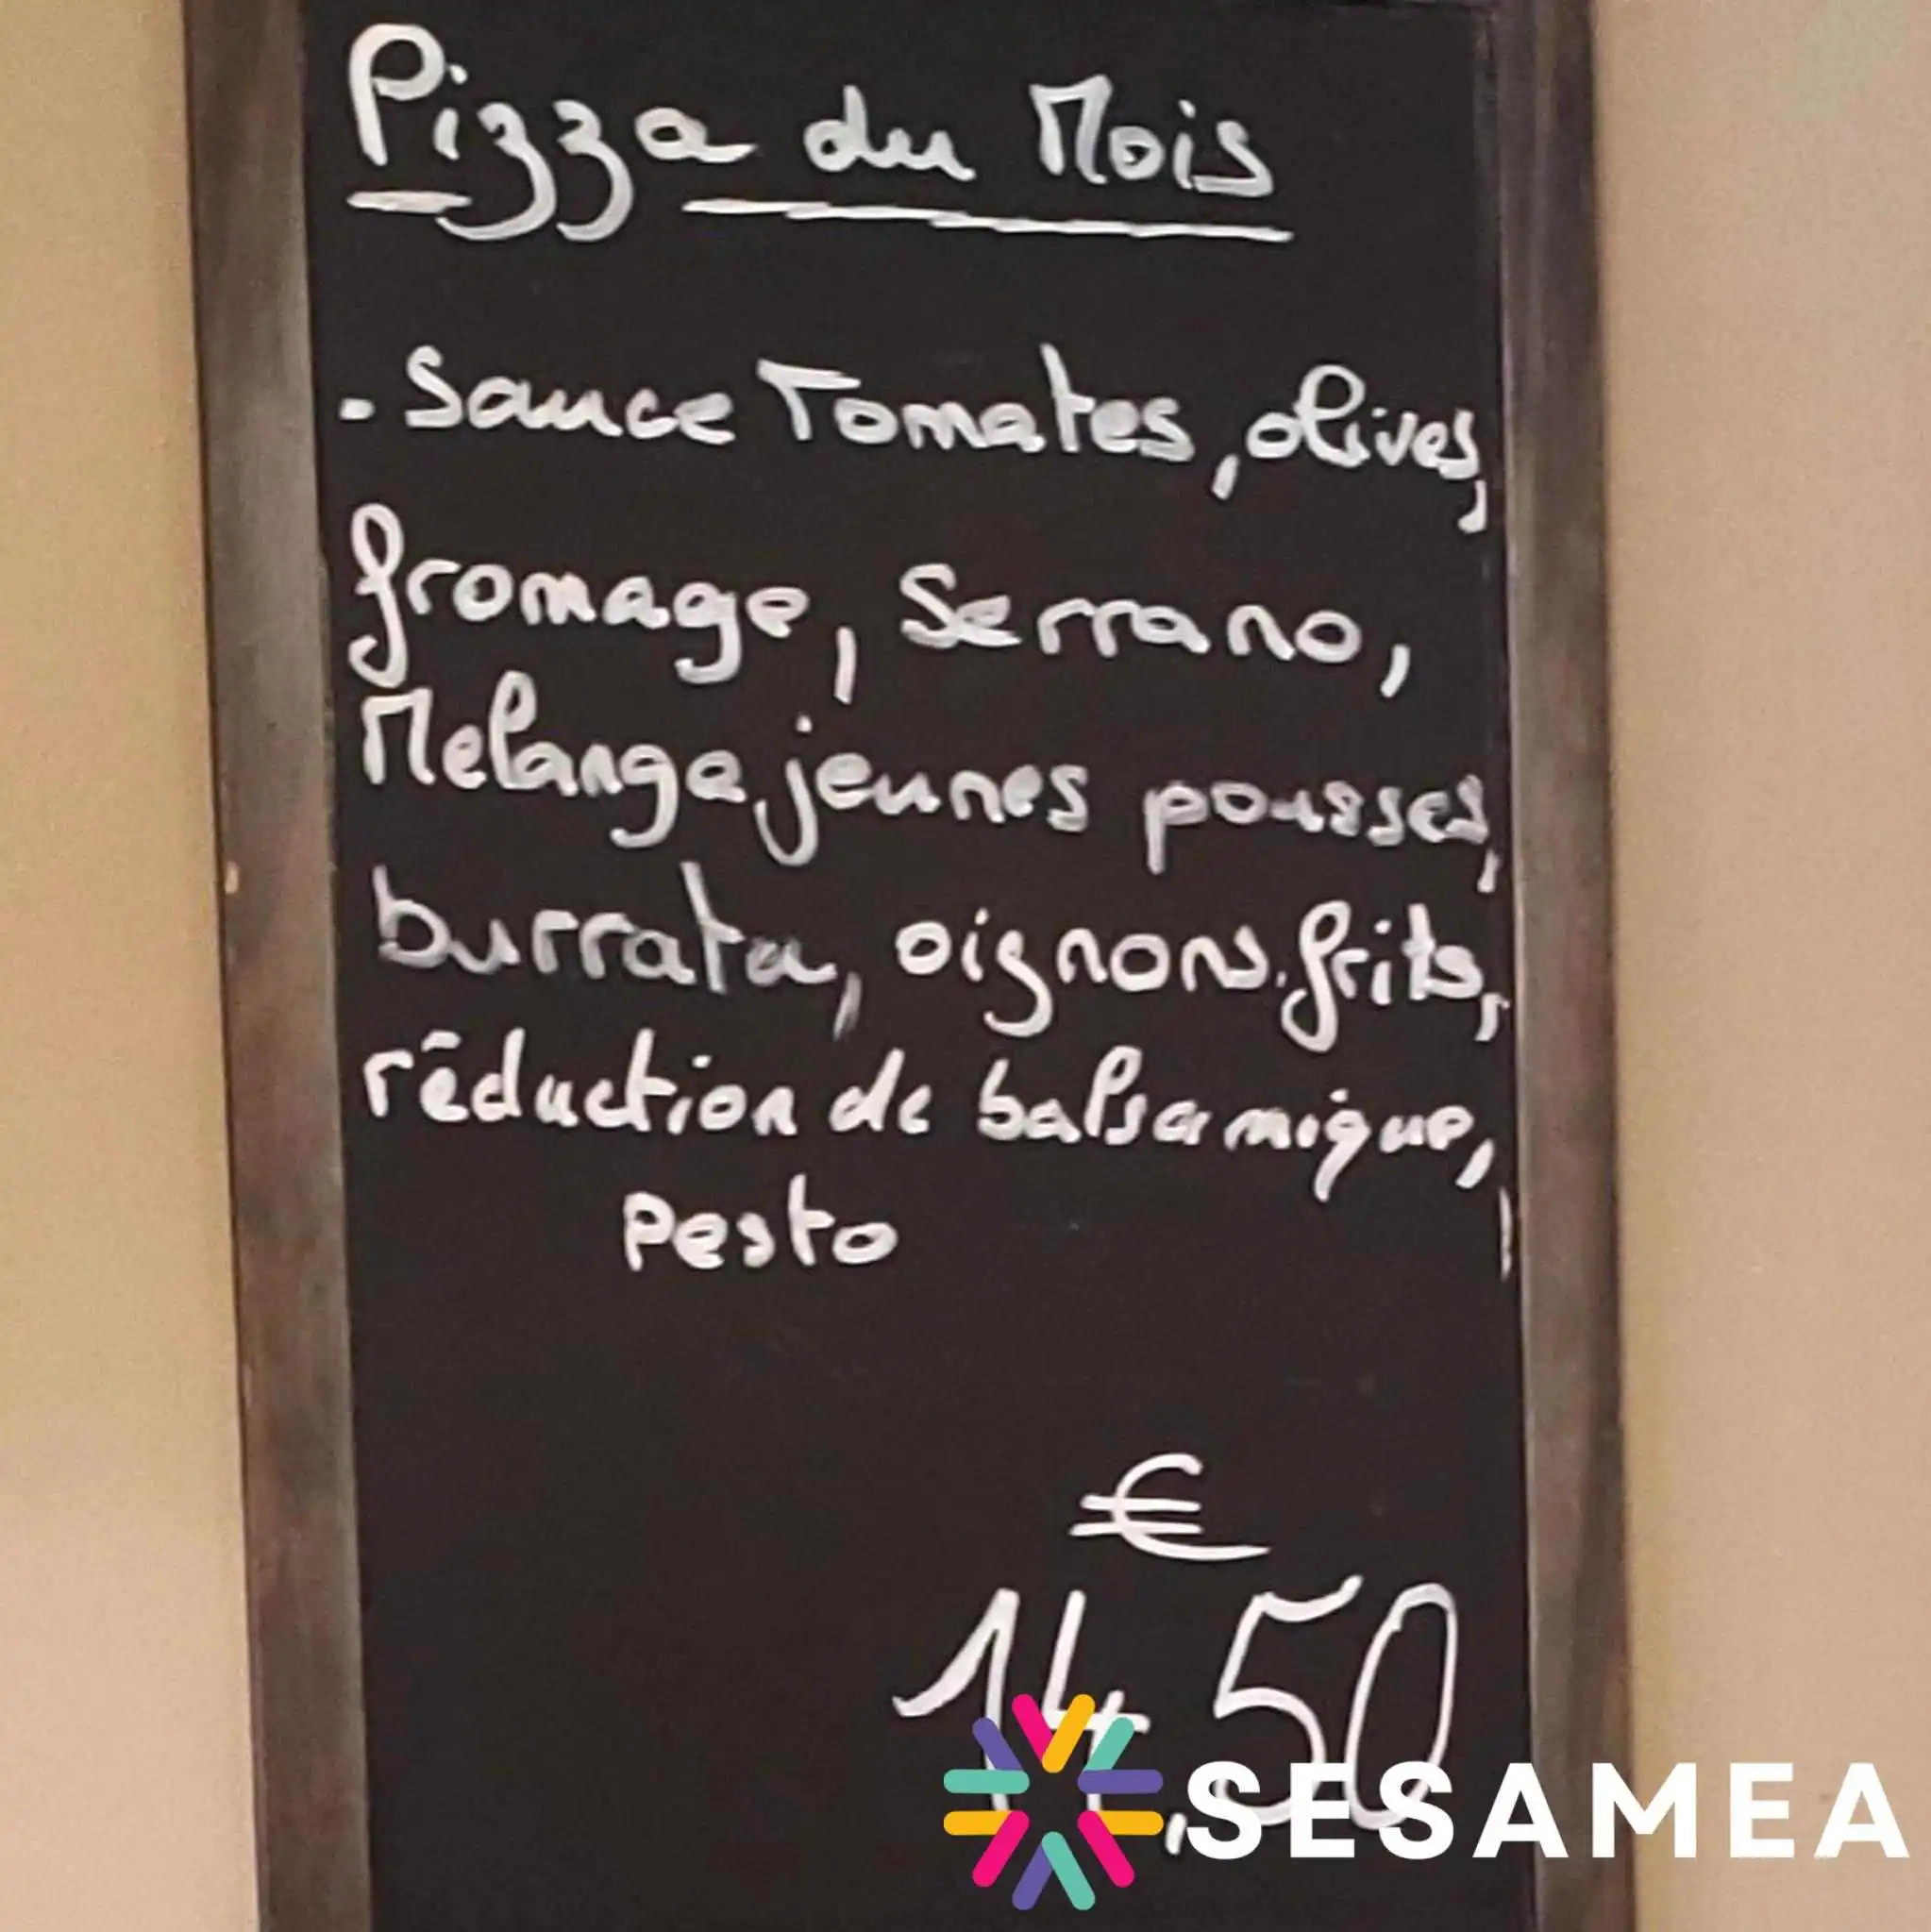 Pizza du Mois
- Sauce Tomates, olives,
fromage, Serrano,
Melange jeunes pousses,
burrata, oignons frits,
réduction de balsamique,
Pesto
€
14,50
SESAMEA